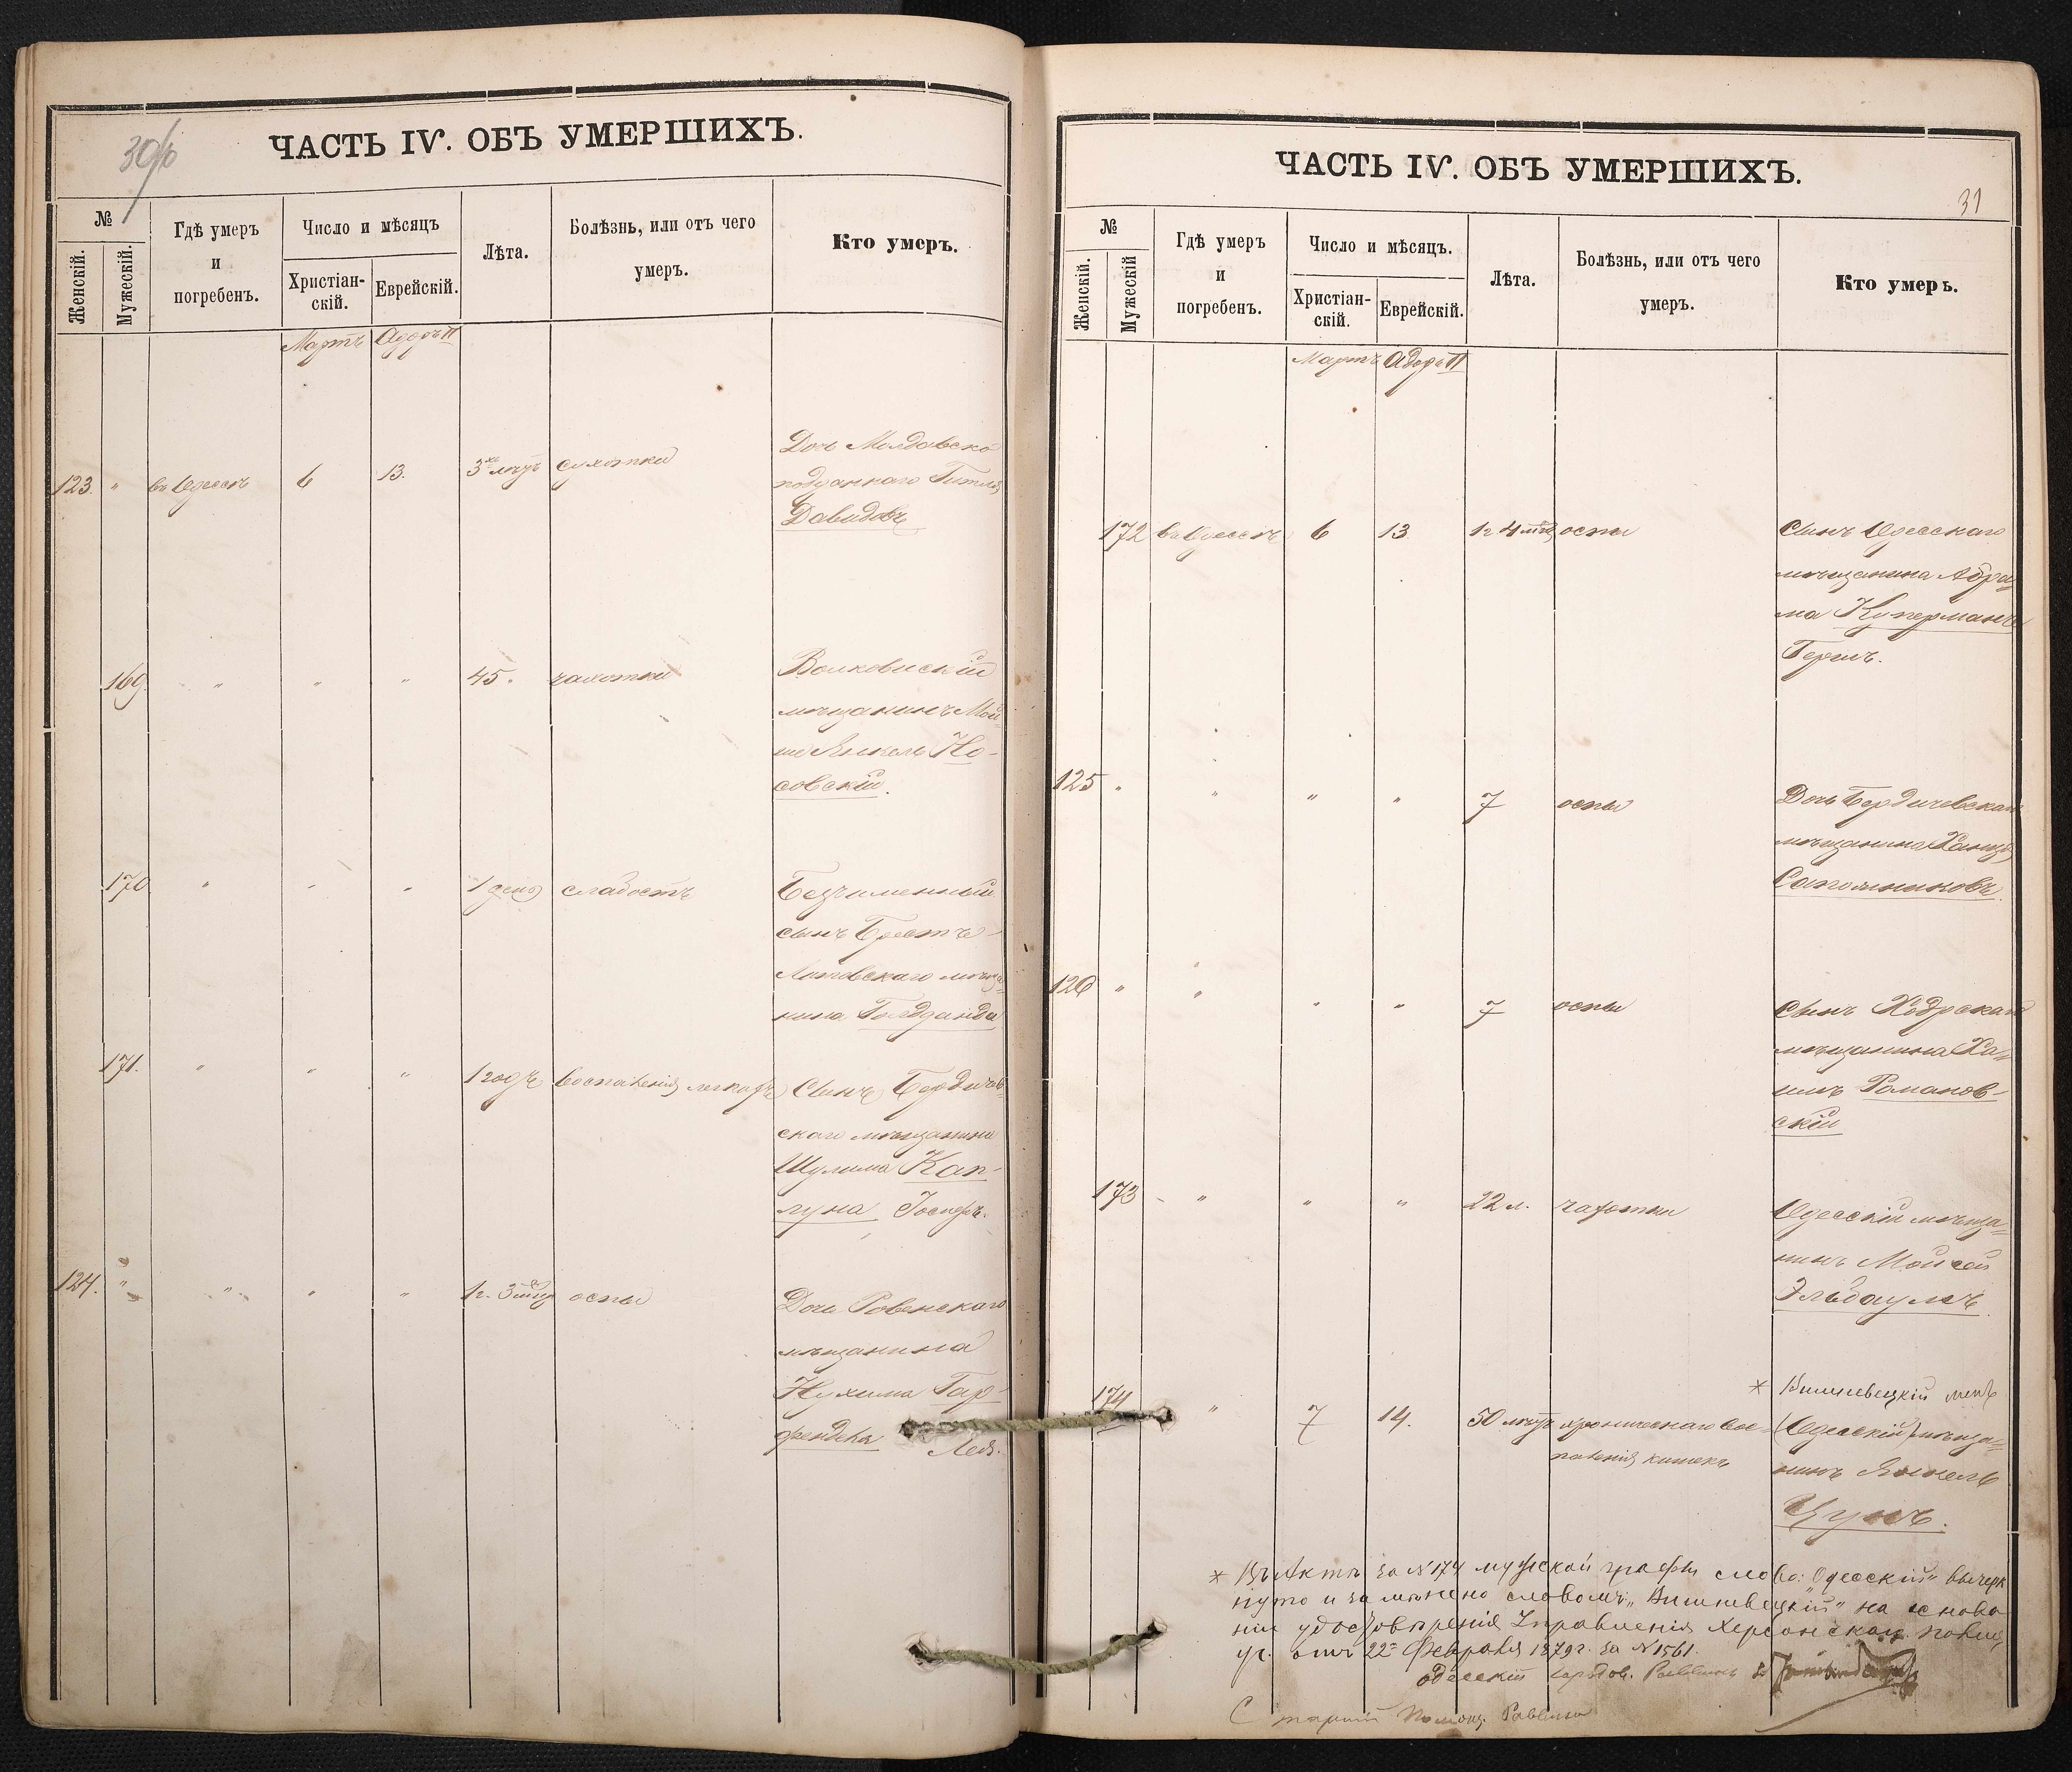 30
ЧАСТЬ IV. ОБЪ УМЕРШИХЪ.
№
Женскій.
Мужескій.
Гдѣ умеръ
и
погребенъ.
Число и мѣсяцъ
Христіан-
скій.
Еврейскій.
Лѣта.
Болѣзнь, или отъ чего
умеръ.
Кто умеръ.
Мартъ Адаръ II
123. " въ Одессѣ 6 13. 3хъ мѣц сухотки
Дочь Молдавско
подданнаго Гитля
Давидовъ
169. " " " 45. чахотки
Волковискій
мѣщанинъ Мой
ше Янкель Но-
совскій.
170 " " " 1 день слабость
Безъименный
сынъ Брестъ-
Литовскаго мѣща-
нина
171. " " " 1 годъ воспаленія легкихъ Сынъ Бердичев-
скаго мѣщанина
Шулима Кап-
луна, Іосифъ.
124. " " " " 1г. 3 мѣц оспы
Дочь Ровенскаго
мѣщанина
Нухима Гар-
Лея.
ЧАСТЬ IV. ОБЪ УМЕРШИХЪ.
31
№
Женскій.
Мужескій
Гдѣ умеръ
и
погребенъ.
Число и мѣсяцъ.
Христіан-
скій.
Еврейскій.
Лѣта.
Болѣзнь, или отъ чего
умеръ.
Кто умеръ.
Мартъ Адаръ II
172 въ Одессѣ 6 13. 1г 4 мѣц оспы
Сынъ Одесскаго
мѣщанина Абра-
ма Куперманъ
Герш.
125 " " " " 7 оспы
Дочь Бердичевскаго
мѣщанина
Сапожниковъ.
126 " " " " 7 оспы
Сынъ
мѣщанина Ха-
имъ Романов-
скій
173 " " " 22 л. чахотки
Одесскій мѣща-
нинъ Мойсей
174 " 7 14. 50 хроническаго вос-
паленія кишекъ
* Вишневецкій мѣщ
(Одесскій) мѣща-
нинъ Янкель
Цунъ.
* Въ Актѣ за №174 мужской графы слово: "Одесскій" вычерк
нуто и замѣнено словомъ "Вишневецкій" на основа
ніи удостовѣренія Управленія Херсонской полиц
отъ 22го Февраля 1879 г. за №1561.
Одесскій Городов. Раввинъ
Старшій Помощ. Раввина